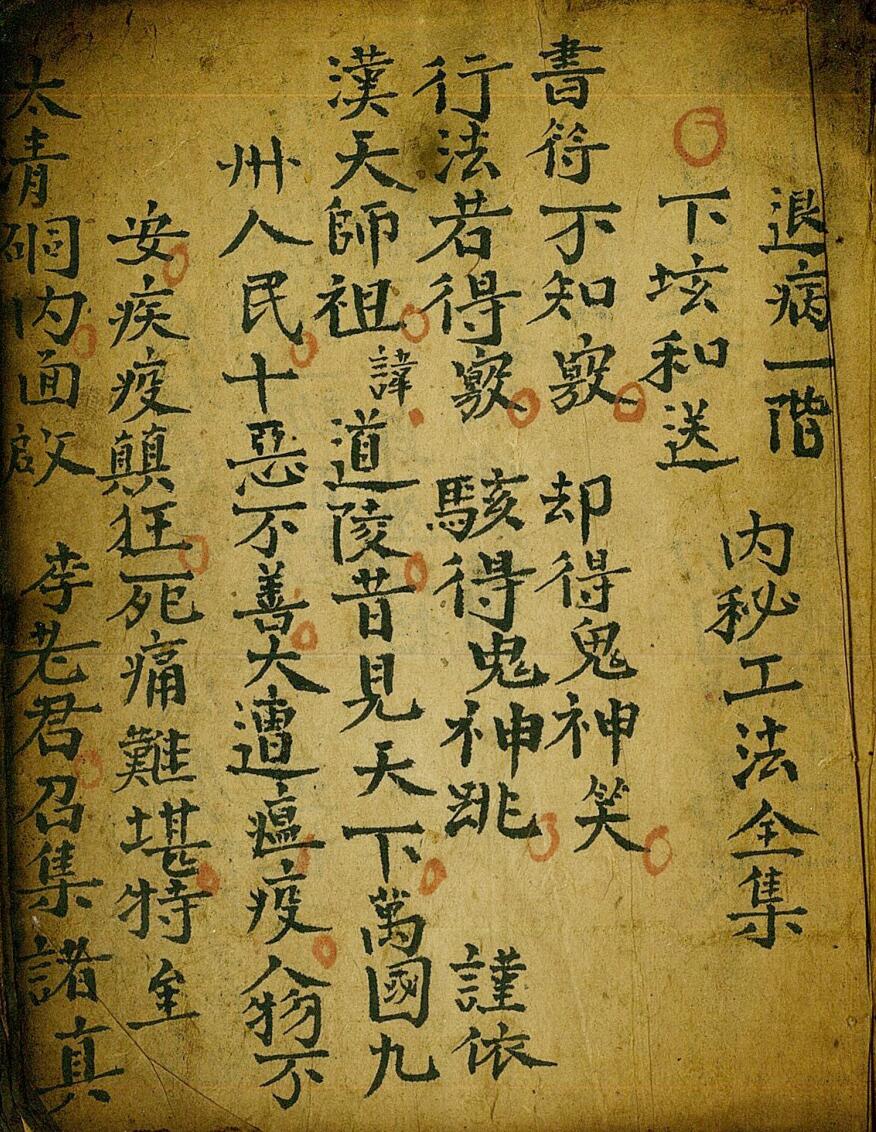 退病一階
内秘工法全集
下坛和送
書符不知竅 却得鬼神笑
行法若得竅 駭得鬼神跳 謹依
漢天師祖諱道陵昔見天下萬國九
州人民十惡不善大遭瘟疫人物不
安疾疫顛狂死痛難堪特至
太清硐内面啟 李老君召集諸真